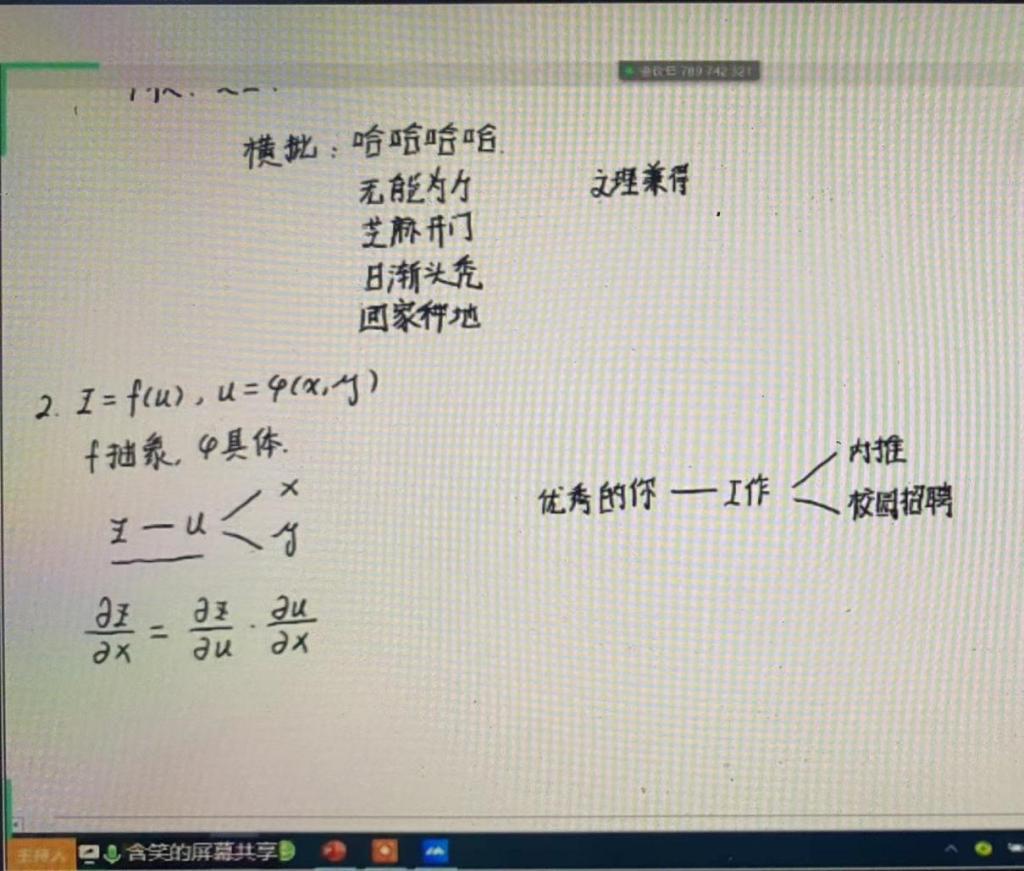 会议号 789 742 321
横批：哈哈哈哈.
无能为力
文理兼得
芝麻开门
日渐头秃
回家种地
2. Z = f(u), u = φ(x, y)
f抽象, φ具体.
z — u
x
y
优秀的你 — 工作
内推
校园招聘
∂z/∂x = ∂z/∂u · ∂u/∂x
主持人
含笑的屏幕共享